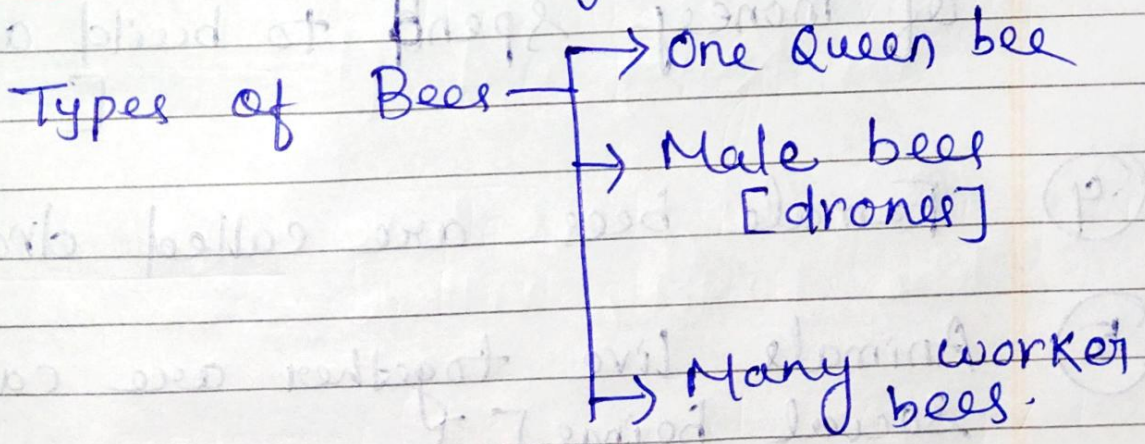 Types of Bees → One Queen bee
→ Male bees
[drones]
→ Many worker
bees.